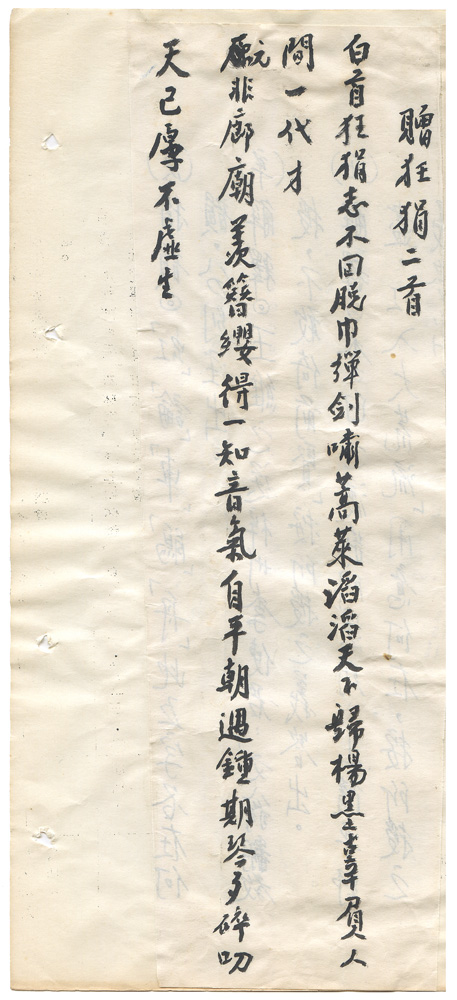 贈狂狷二首
白首狂狷志不回脫巾彈劍嘯蒿萊滔滔天下歸楊墨辜負人
間一代才
非廊廟羨簪纓得一知音氣自平朝遇鍾期琴夕碎叨
天已厚不虛生